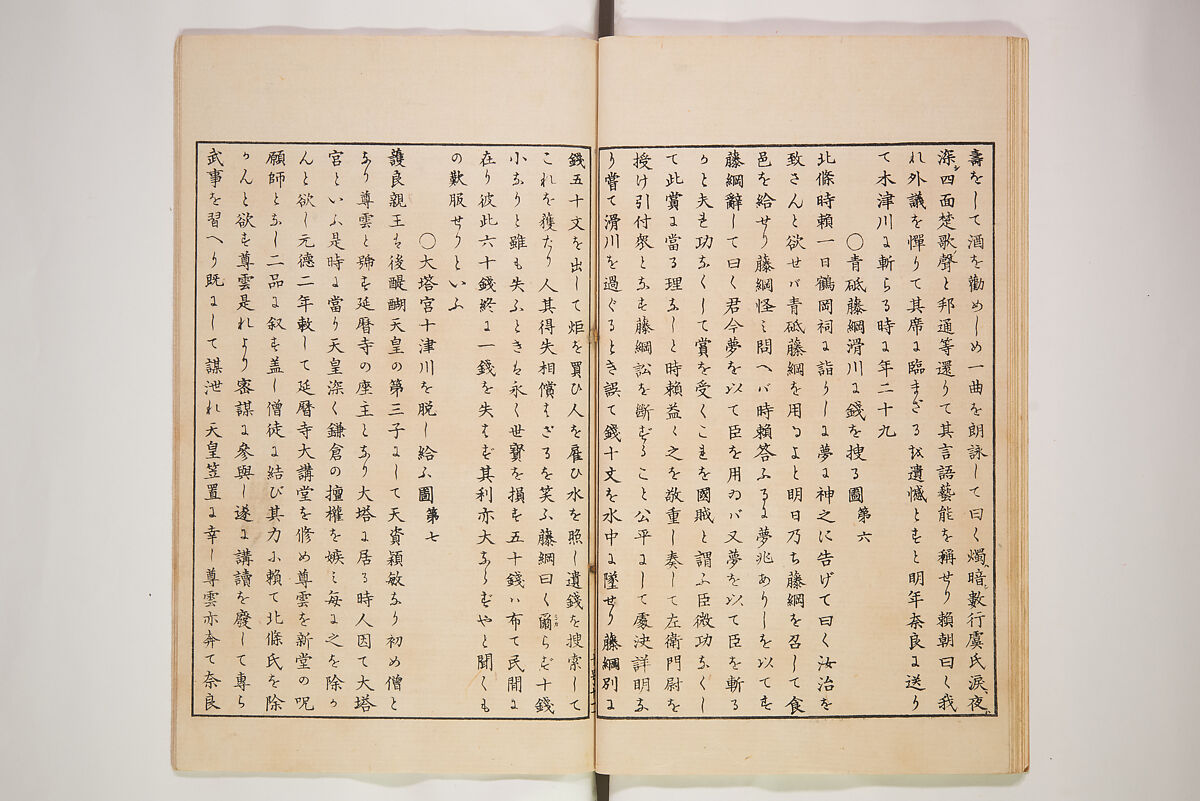 壽をして酒を勸めしめ一曲を朗詠して曰く燭暗數行虞氏淚夜
深四面楚歌聲と邦通等還りて其言語藝能を稱せり賴朝曰く我
れ外議を憚りて其席に臨まざるは遺憾とすと明年奈良に送り
て木津川に斬らる時に年二十九
〇青砥藤綱滑川に錢を捜る圖第六
北條時賴一日鶴岡祠に詣りしに夢に神之に告げて曰く汝治を
致さんと欲せバ青砥藤綱を用ゐよと明日乃ち藤綱を召して食
邑を給せり藤綱怪み問へバ時賴答ふるに夢兆ありしを以てす
藤綱辭して曰く君今夢を以て臣を用ゐバ又夢を以て臣を斬る
かと夫れ功なくして賞を受くこれを國賊と謂ふ臣微功なくし
て此賞に當る理なしと時賴益く之を敬重し奏して左衛門尉を
授け引付衆となす藤綱訟を斷ずること公平にして處決詳明な
り嘗て滑川を過ぐるとき誤て錢十文を水中に墜せり藤綱別に
錢五十文を出して炬を買ひ人を雇ひ水を照し遺錢を搜索して
これを獲たり人其得失相償はざるを笑ふ藤綱曰く爾らず十錢
小なりと雖も失ふときは永く世寶を損す五十錢ハ布て民間に
在り彼此六十錢終に一錢を失はず其利亦大ならずやと聞くも
の歎服せりといふ
〇大塔宮十津川を脱し給ふ圖第七
護良親王は後醍醐天皇の第三子にして天資穎敏なり初め僧と
なり尊雲と號す延曆寺の座主となり大塔に居る時人因て大塔
宮といふ是時に當り天皇深く鎌倉の擅權を嫉み每に之を除か
んと欲し元德二年敕して延曆寺大講堂を修め尊雲を新堂の呪
願と師となし二品に叙す盖し僧徒に結び其力に賴て北條氏を除
かんと欲す尊雲是れより密謀に參與し遂に講讀を廢して專ら
武事を習へり既にして謀泄れ天皇笠置に幸し尊雲亦奔て奈良